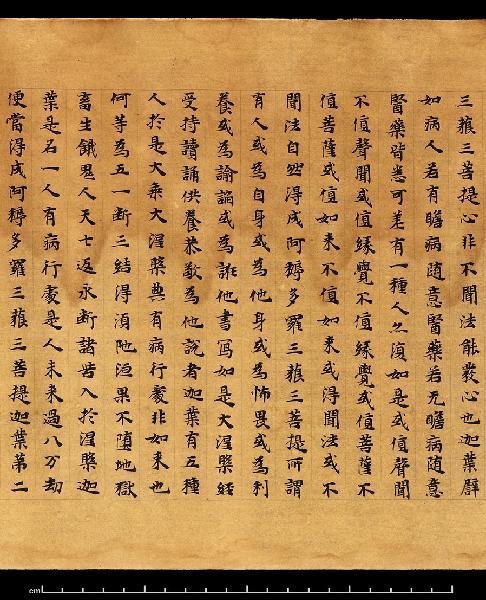 三藐三菩提心非不聞法能發心也迦葉譬
如病人若有瞻病随意醫藥若无瞻病随意
醫藥皆悉可差有一種人亦復如是或值聲聞
不值聲聞或值緣覺不值緣覺或值菩薩不
值菩薩或值如来不值如来或得聞法或不
聞法自然得成阿耨多羅三藐三菩提所謂
有人或為自身或為他身或為怖畏或為利
養或為諭諂或為誑他書寫如是大涅槃經
受持讀誦供養恭敬為他說者迦葉有五種
人於是大乗大涅槃典有病行處非如来也
何等為五一断三結得湏陁洹果不墮地獄
畜生餓鬼人天七返永断諸苦入於涅槃迦
葉是名一人有病行處是人未来過八万劫
便當得成阿耨多羅三藐三菩提迦葉第二
cm